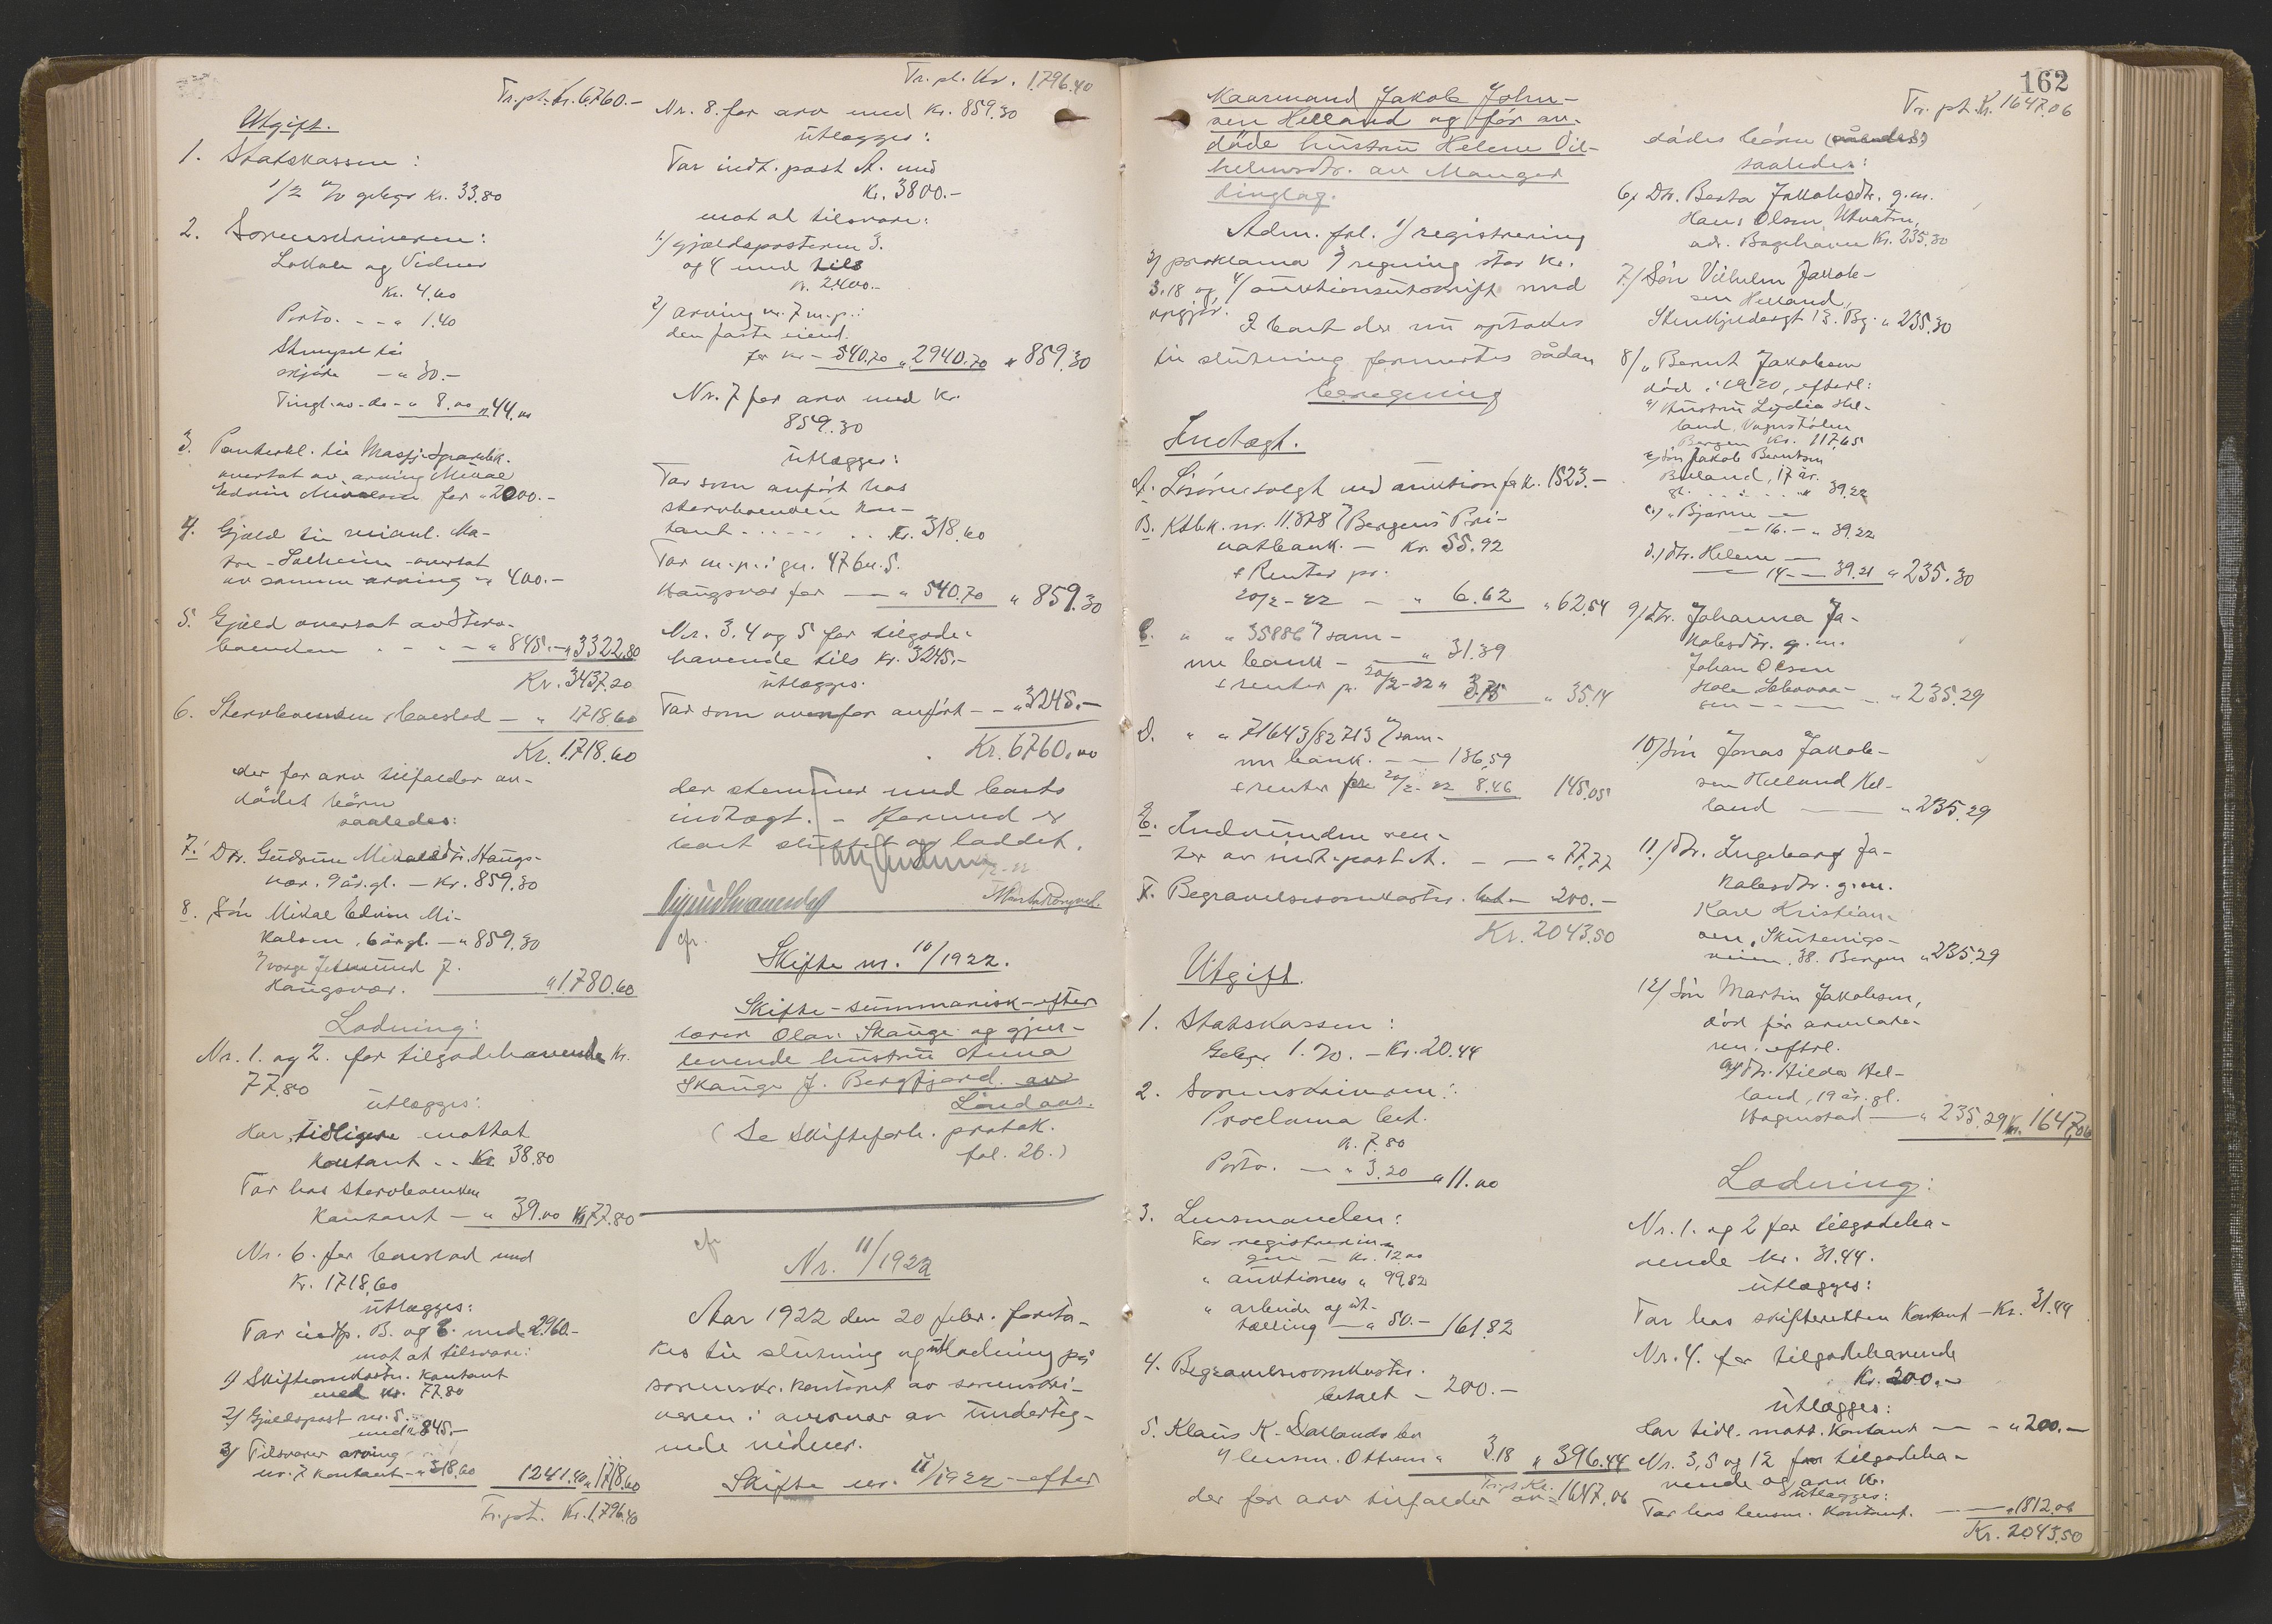 Tr. pt. Kr. 6760.-
Utgift.
1. Statskassen:
1/2 % gebyr Kr. 33.80
2. Sorenskriveren:
Lokale og Vidner
Kr. 4.60
Porto. - - " 1.40
Stempel til
skjöte - " 30.-
Tingl. av do - " 8.00 " 44.00
3. Panteobl. til Masfj. Sparebk.
overtat av arving Mikal
Edvin Mikalsen for " 2000.-
4. Gjæld til
- Solheim - overtat
av samme arving - " 400.-
5. Gjæld overtat av Sterv-
boenken - - - " 845.- " 3322.80
Kr. 3437.20
6. Stervboenken boeslod - " 1718.60
Kr. 1718.60
der før arv tilfalder av-
dödes börn
saaledes:
7. Dtr. Gudrun Mikalsdtr. Haugs-
vær. 9 år. gl. - Kr. 859.30
8. Sön Mikal Edvin Mi-
kalsen, 6 år gl. - " 859.30
Haugsvær. " 1780.60
Lodning:
Nr. 1. og 2. for tilgodehavende Kr.
77.80
utlægges:
Har tidligere mottat
kontant .. Kr. 38.80
Tar hos stervboenken
kontant - " 39.00 Kr. 77.80
Nr. 6. for boeslod med
Kr. 1718.60
utlægges:
Tar indtp. B. og C. med " 2960.-
mot at tilsvare:
1) Skifteomkostn. kontant
med Kr. 77.80
2) Gjældspost nr. 5.
med " 845.-
3) Tilsvarer arving
nr. 7 kontant - " 318.60 1241.40 " 1718.60
Tr. pt. Kr. 1796.40
Tr. pt. Kr. 1796.40
Nr. 8. for arv med Kr. 859.30
utlægges:
Tar indt. post A. med
Kr. 3800.-
mot at tilsvare:
1) gjældsposterne 3.
og 4 med tils
Kr. 2400.-
2) arving nr. 7 m.p. i
den faste eiend.
for Kr - 540.70 " 2940.70 " 859.30
Nr. 7 for arv med Kr.
859.30
utlægges:
Tar som anfört hos
stervboenken kon-
tant - - - - - .. Kr. 318.60
Tar m.p. i gn. 47 bn. 5.
Haugsvær for - - " 540.70 " 859.30
Nr. 3. 4 og 5 for tilgode-
havende tils Kr. 3245.-
utlægges.
Tar som ovenfor anfört - - " 3245.-
Kr. 6760.00
der stemmer med boets
indtægt. - Hermed er
boet sluttet og loddet.
cfr.
Skifte nr. 10/1922.
Skifte - summarisk - efter
lærer Olav Skauge og gjen-
levende hustru Anna
Skauge f. Bergfjord. av
Lindaas.
(Se Skifteforh. protok.
fol. 26.)
cfr
Nr. 11/1922
Aar 1922 den 20 febr. foreto-
kes til slutning og utlodning på
sorenskr. kontoret av sorenskri-
veren i overvær av underteg-
nede vidner.
Skifte nr. 11/1922 - efter
162
Kaarmand Jakob John-
sen Helland og för av-
döde hustru Helene Vil-
helmsdtr. av Manger
tinglag.
Adm. frl. 1) registrering
2) proklama 3) regning stor Kr.
3.18 og 4) auktionsutskrift med
opgjör.
I boet der nu optokes
til slutning formertes sådan
beregning
Indtægt.
A. Lösöre solgt ved auktion for Kr. 1523.-
B. Ktbk. nr. 11.878 i Bergens Pri-
vatbank. - Kr. 55.92
+ Renter pr.
20/2-22 - " 6.62 " 62.54
C. " " 35886 i sam-
me bank - " 31.39
+ renter pr. 20/2-22 " 3.75 " 35.14
D. " " 71643/82713 i sam-
me bank. - - 136.59
+ renter pr 20/2-22 8.46 145.05
E. Indvundne ren-
ter av indt. post A. - - " 77.77
F. Begravelsesomkostn. bet - 200.-
Kr. 2043.50
Utgift.
1. Statskassen:
Gebyr 1 %. - Kr. 20.44
2. Sorenskriveren:
Proclama bet.
Kr. 7.80
Porto. - - " 3.20 " 11.00
3. Lensmanden:
For registrerin-
gen - Kr. 12.00
" auktionen " 99.82
" arbeide og ut-
tælling - " 50.- 161.82
4. Begravelsesomkostn.
betalt - 200.-
5. Klaus K. Dallands bo
v/ lensm. Ottesen " 3.18 " 396.44
der før arv tilfalder av- Tr. pt. Kr. 1647.06
Tr. pt. Kr. 1647.06
dödes börn
saaledes:
6) Dtr. Berta Jakobsdtr. g.m.
Hans Olsen Utvatn,
adr. Bagehavn Kr. 235.30
7) Sön Vilhelm Jakob-
sen Helland,
Stenkjeldersgt 13. Bg. " 235.30
8) " Bernt Jakobsen
död i 1920, efterl:
a) Hustru Lydia Hel-
land,
Bergen Kr. 117.65
b) sön Jakob Berntsen
Helland, 17 år.
gl. - - - - " 39.22
c) " Bjarne -
- 16. - " 39.22
d) dtr. Helene -
- 14 - - 39.21 " 235.30
9) dtr. Johanna Ja-
kobsdtr. g.m.
Johan Olsen
- - " 235.29
10) Sön Jonas Jakob-
sen Helland Hel-
land - " 235.29
11) dtr. Ingeborg Ja-
kobsdtr. g.m.
Karl Kristian-
sen, Skuteviks-
veien 38. Bergen " 235.29
12) Sön Martin Jakobsen,
död för arvelate-
ren. efterl.
a) dtr. Hilda Hel-
land, 19 år. gl.
Hagenstad - " 235.29 Kr. 1647.06
Lodning:
Nr. 1. og 2 for tilgodeha-
vende Kr. 31.44.
utlægges:
Tar hos skifteretten kontant - Kr. 31.44
Nr. 4. for tilgodehavende
Kr. 200.-
utlægges:
Har tidl. mott. kontant - - - " 200.-
Nr. 3, 5 og 12 for tilgodeha-
vende og arv Kr.
utlægges:
Tar hos lensm. kontant. - " 1812.06
Kr. 2043.50